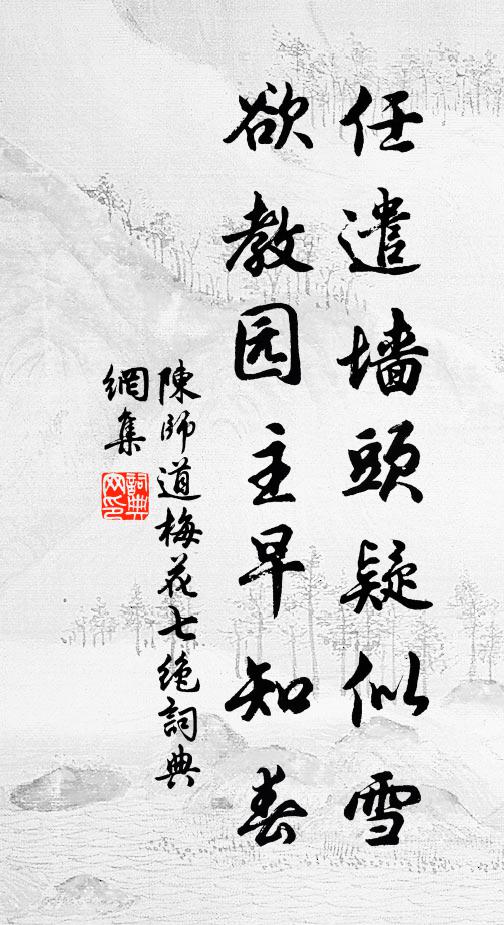 任遣墙頭疑似雪
欲教园主早知春
陳師道梅花七绝詞典
網集
詞典
网印